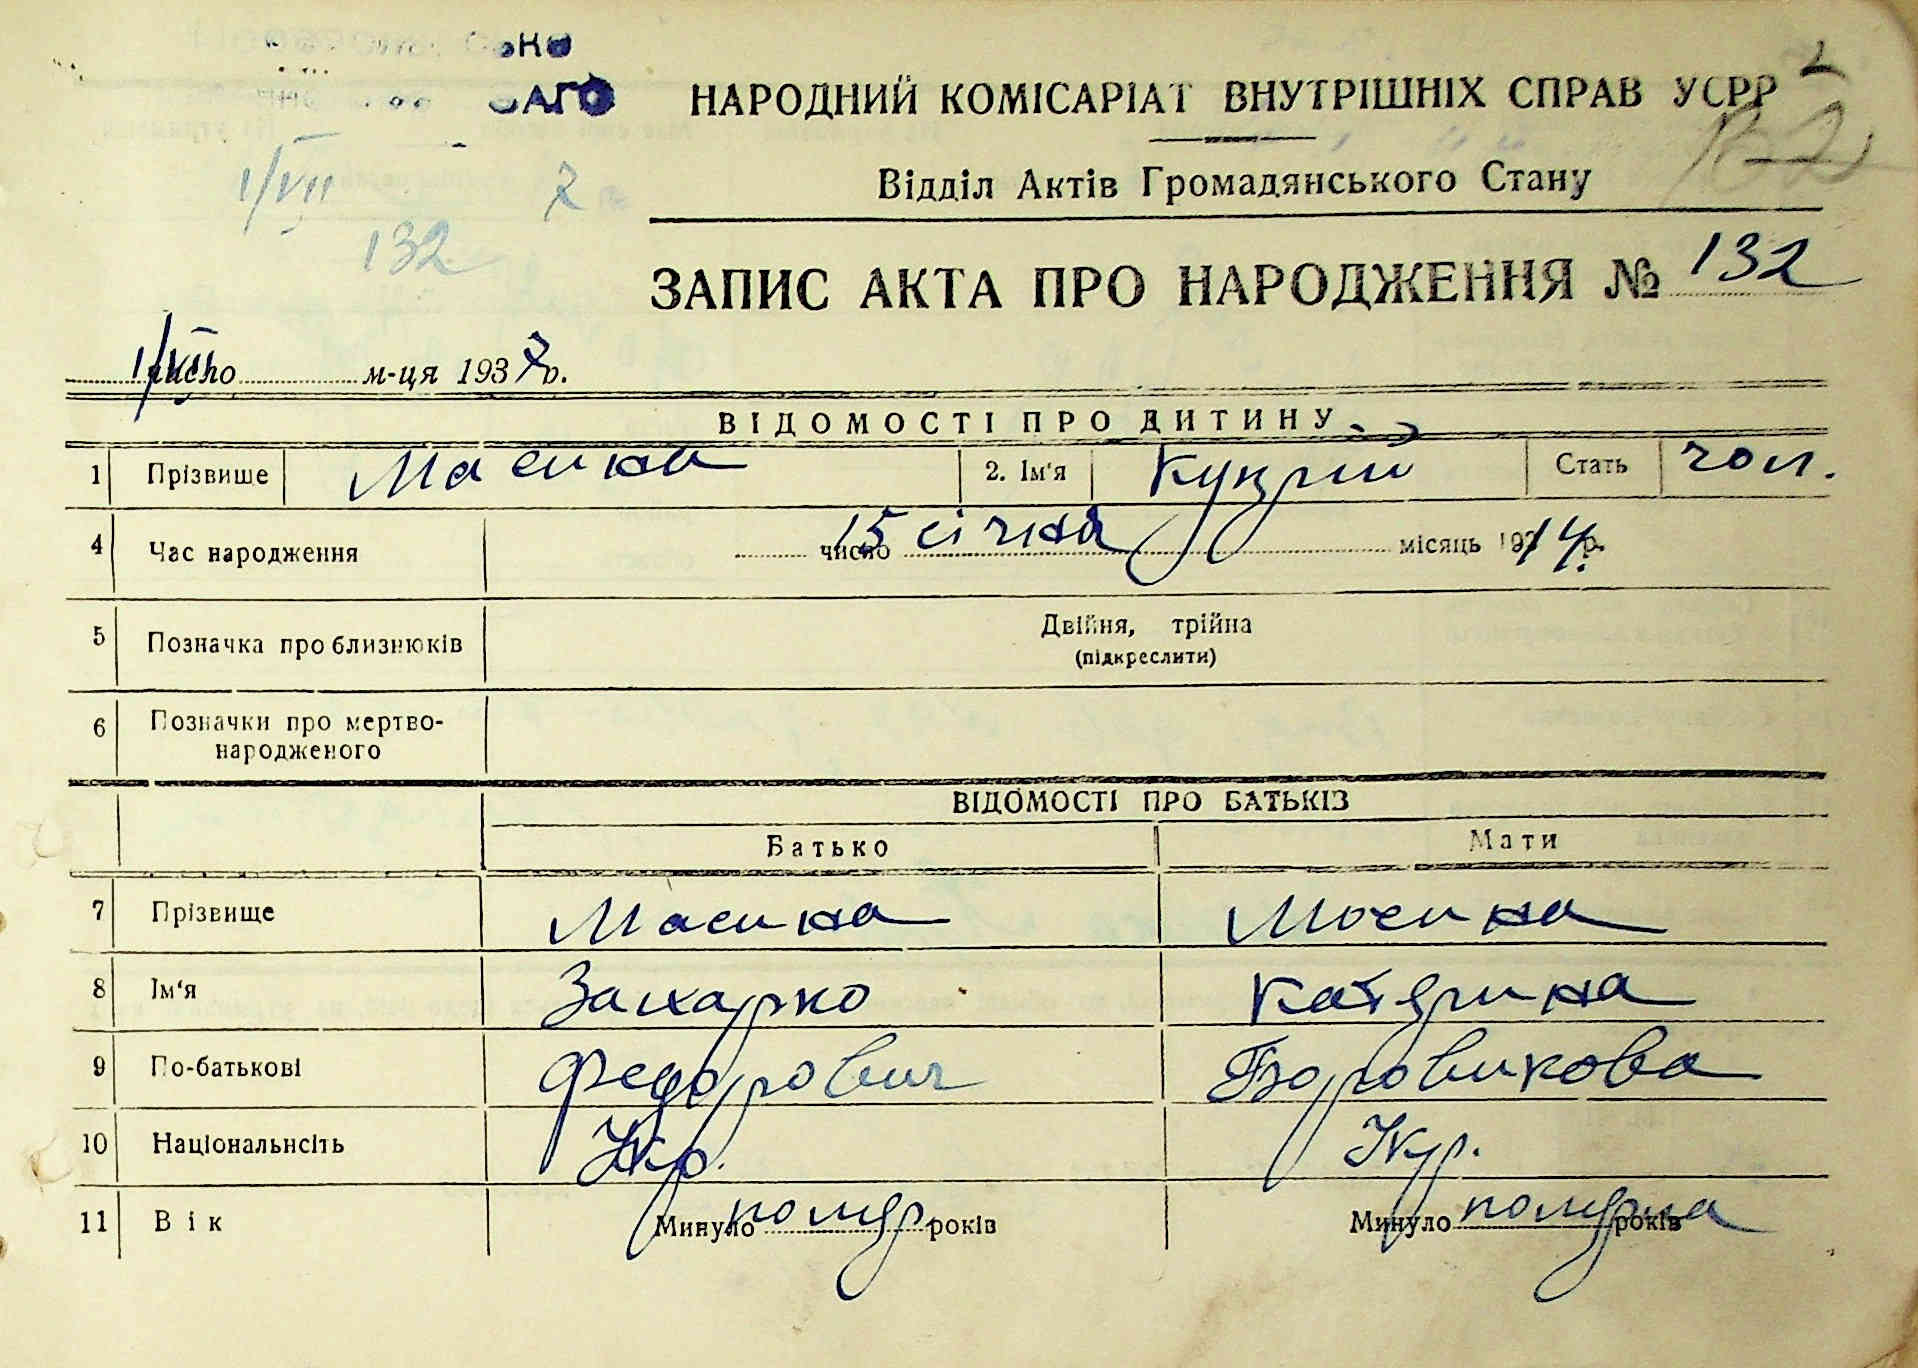 ЗАГС
НАРОДНИЙ КОМІСАРІАТ ВНУТРІШНІХ СПРАВ УСРР
2
Відділ Актів Громадянського Стану
1/VII 7
132
ЗАПИС АКТА ПРО НАРОДЖЕННЯ № 132
1/VII число м-ця 1937 р.
ВІДОМОСТІ ПРО ДИТИНУ
1 Прізвище Масина 2. Ім'я Стать чол.
4 Час народження 15 число січня місяць 1914 р.
5 Позначка про близнюків Двійня, трійна
(підкреслити)
6 Позначки про мертво-
народженого
ВІДОМОСТІ ПРО БАТЬКІВ
Батько Мати
7 Прізвище Масина Масина
8 Ім'я Захарко Катерина
9 По-батькові Федорович Боровикова
10 Національнсіть Укр. Укр.
11 Вік Минуло помер років Минуло померла років